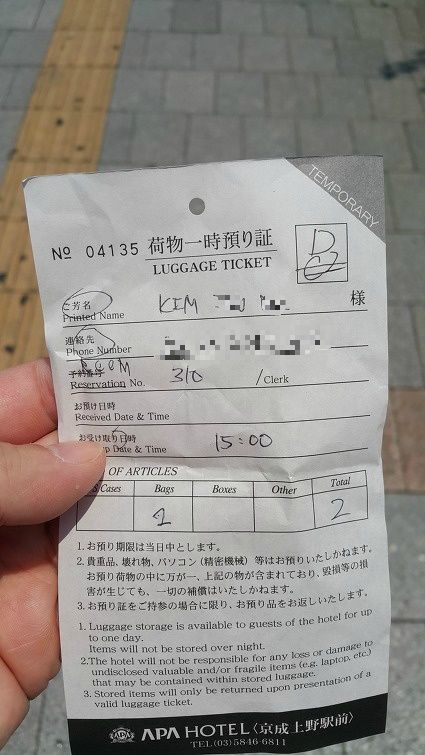 TEMPORARY
No 04135 荷物一時預り証
LUGGAGE TICKET
D
ご芳名 KIM 様
Printed Name
連絡先
Phone Number
予約番号 ROOM
Reservation No. 310 /Clerk
お預け日時
Received Date & Time
お受け取り日時 15:00
Date & Time
OF ARTICLES
Cases Bags Boxes Other Total
2 2
1. お預り期限は当日中とします。
2. 貴重品、壊れ物、パソコン（精密機械）等はお預りいたしかねます。
お預り荷物の中に万が一、上記の物が含まれており、毀損等の損
害が生じても、一切の補償はいたしかねます。
3. お預り証をご持参の場合に限り、お預り品をお返しいたします。
1. Luggage storage is available to guests of the hotel for up
to one day.
Items will not be stored over night.
2.The hotel will not be responsible for any loss or damage to
undisclosed valuable and/or fragile items (e.g. laptop, etc.)
that may be contained within stored luggage.
3. Stored items will only be returned upon presentation of a
valid luggage ticket.
APA HOTEL〈京成上野駅前〉
TEL(03)5846-6811